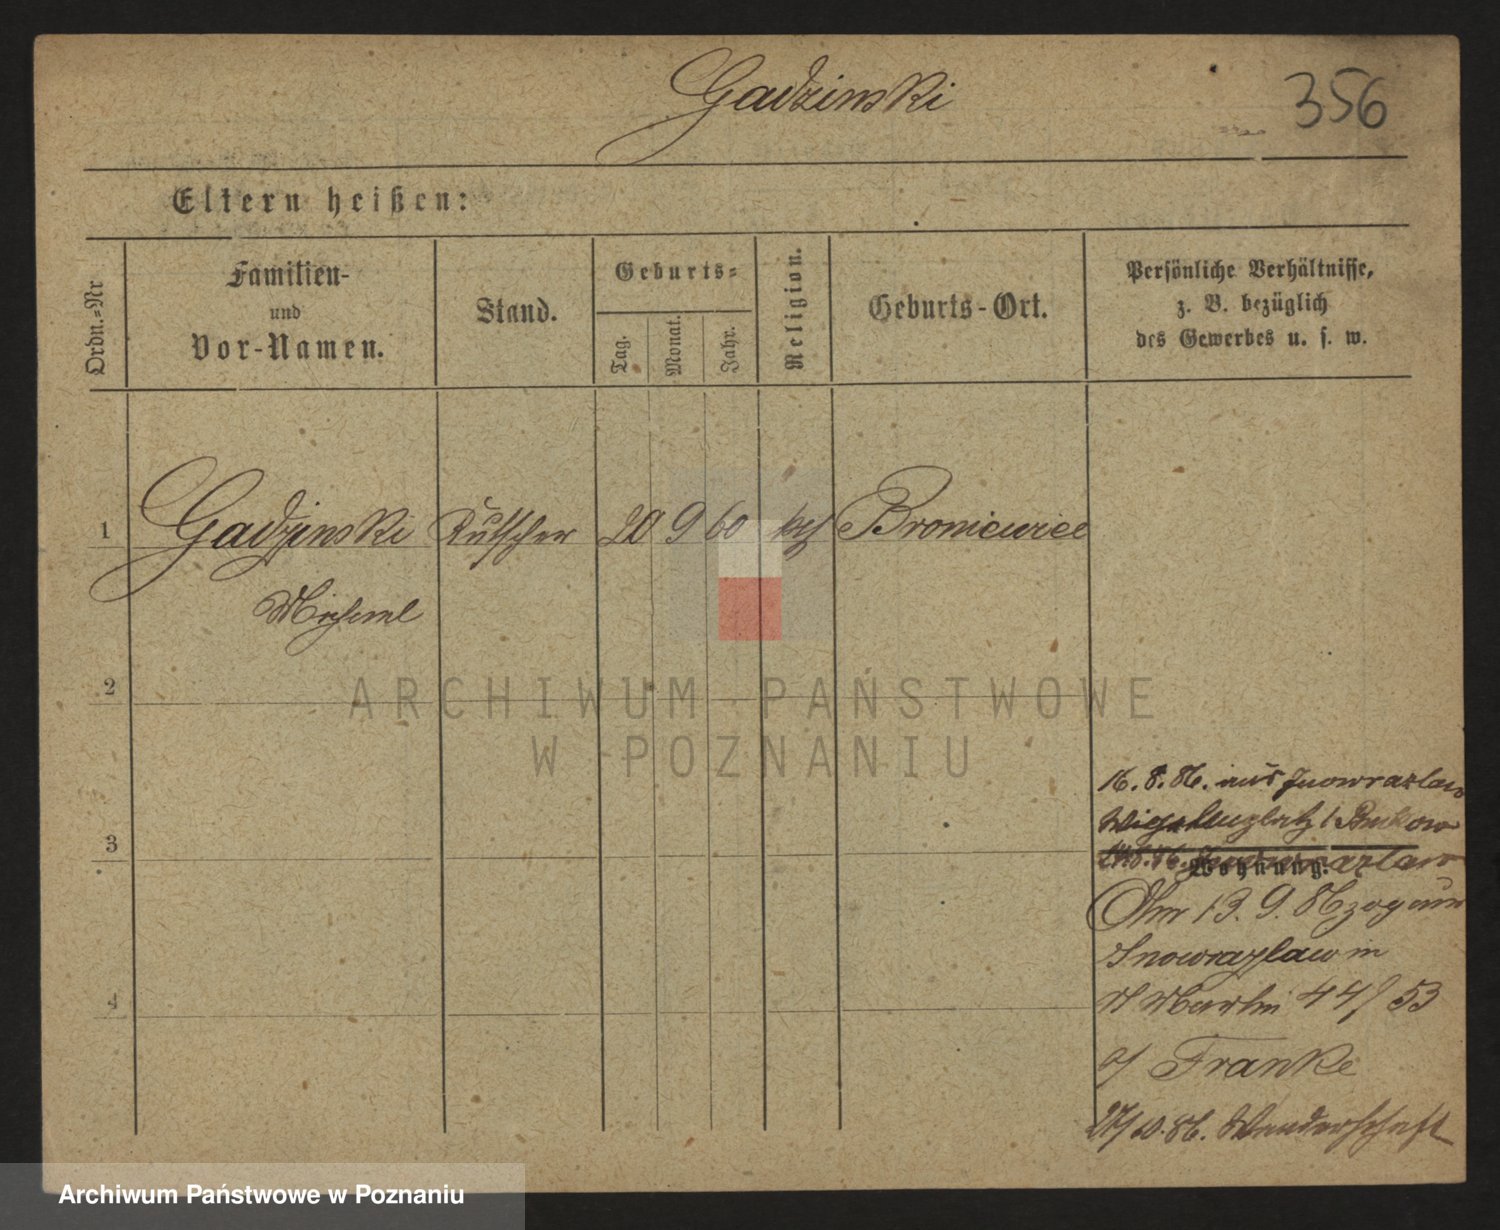 Gadzinski
356
Eltern heißen:
Ordn.-Nr
Familien-
und
Vor-Namen.
Stand.
Geburts-
Tag.
Monat.
Jahr.
Religion.
Geburts-Ort.
Persönliche Verhältnisse,
z. B. bezüglich
des Gewerbes u. s. w.
1 Gadzinski Kutscher 20 9 60 kth Broniewice
Michael
2
3
4
ARCHIWUM PAŃSTWOWE
W POZNANIU
16.8.86. aus Inowrazlaw
Wohnung.
13. 9. 86 zog aus
Inowrazlaw in
St Martin 44/53
b/ Franke
27/10.86. Wanderschaft
Archiwum Państwowe w Poznaniu